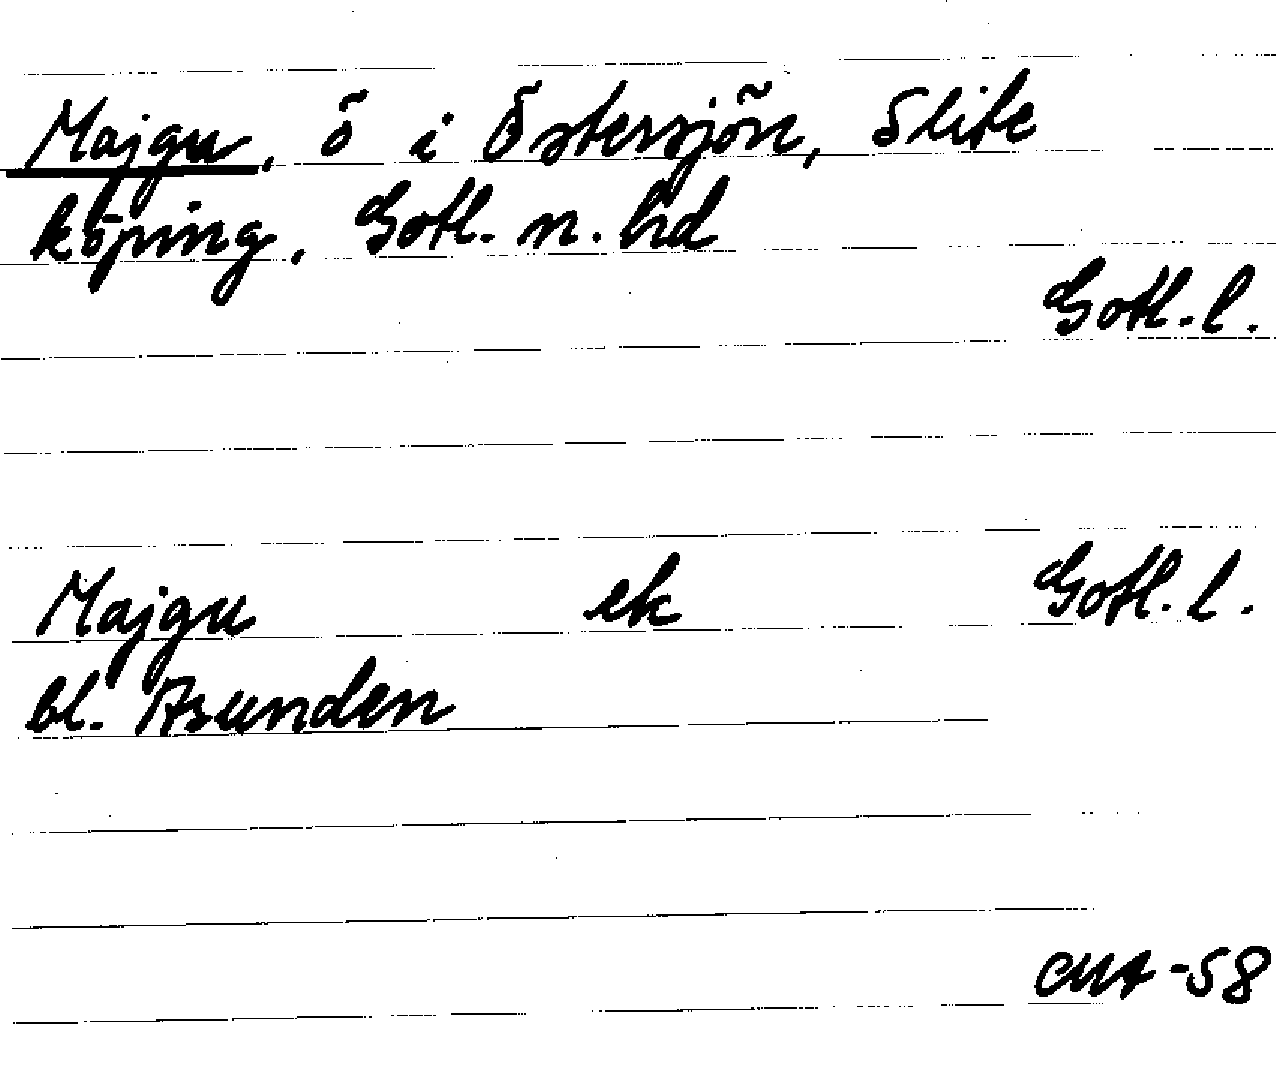 Majgu, ö i Östersjön, Slite
köping, Gotl. n. hd
Gotl. l.
Majgu ek Gotl. l.
bl. Asunden
CMA -58